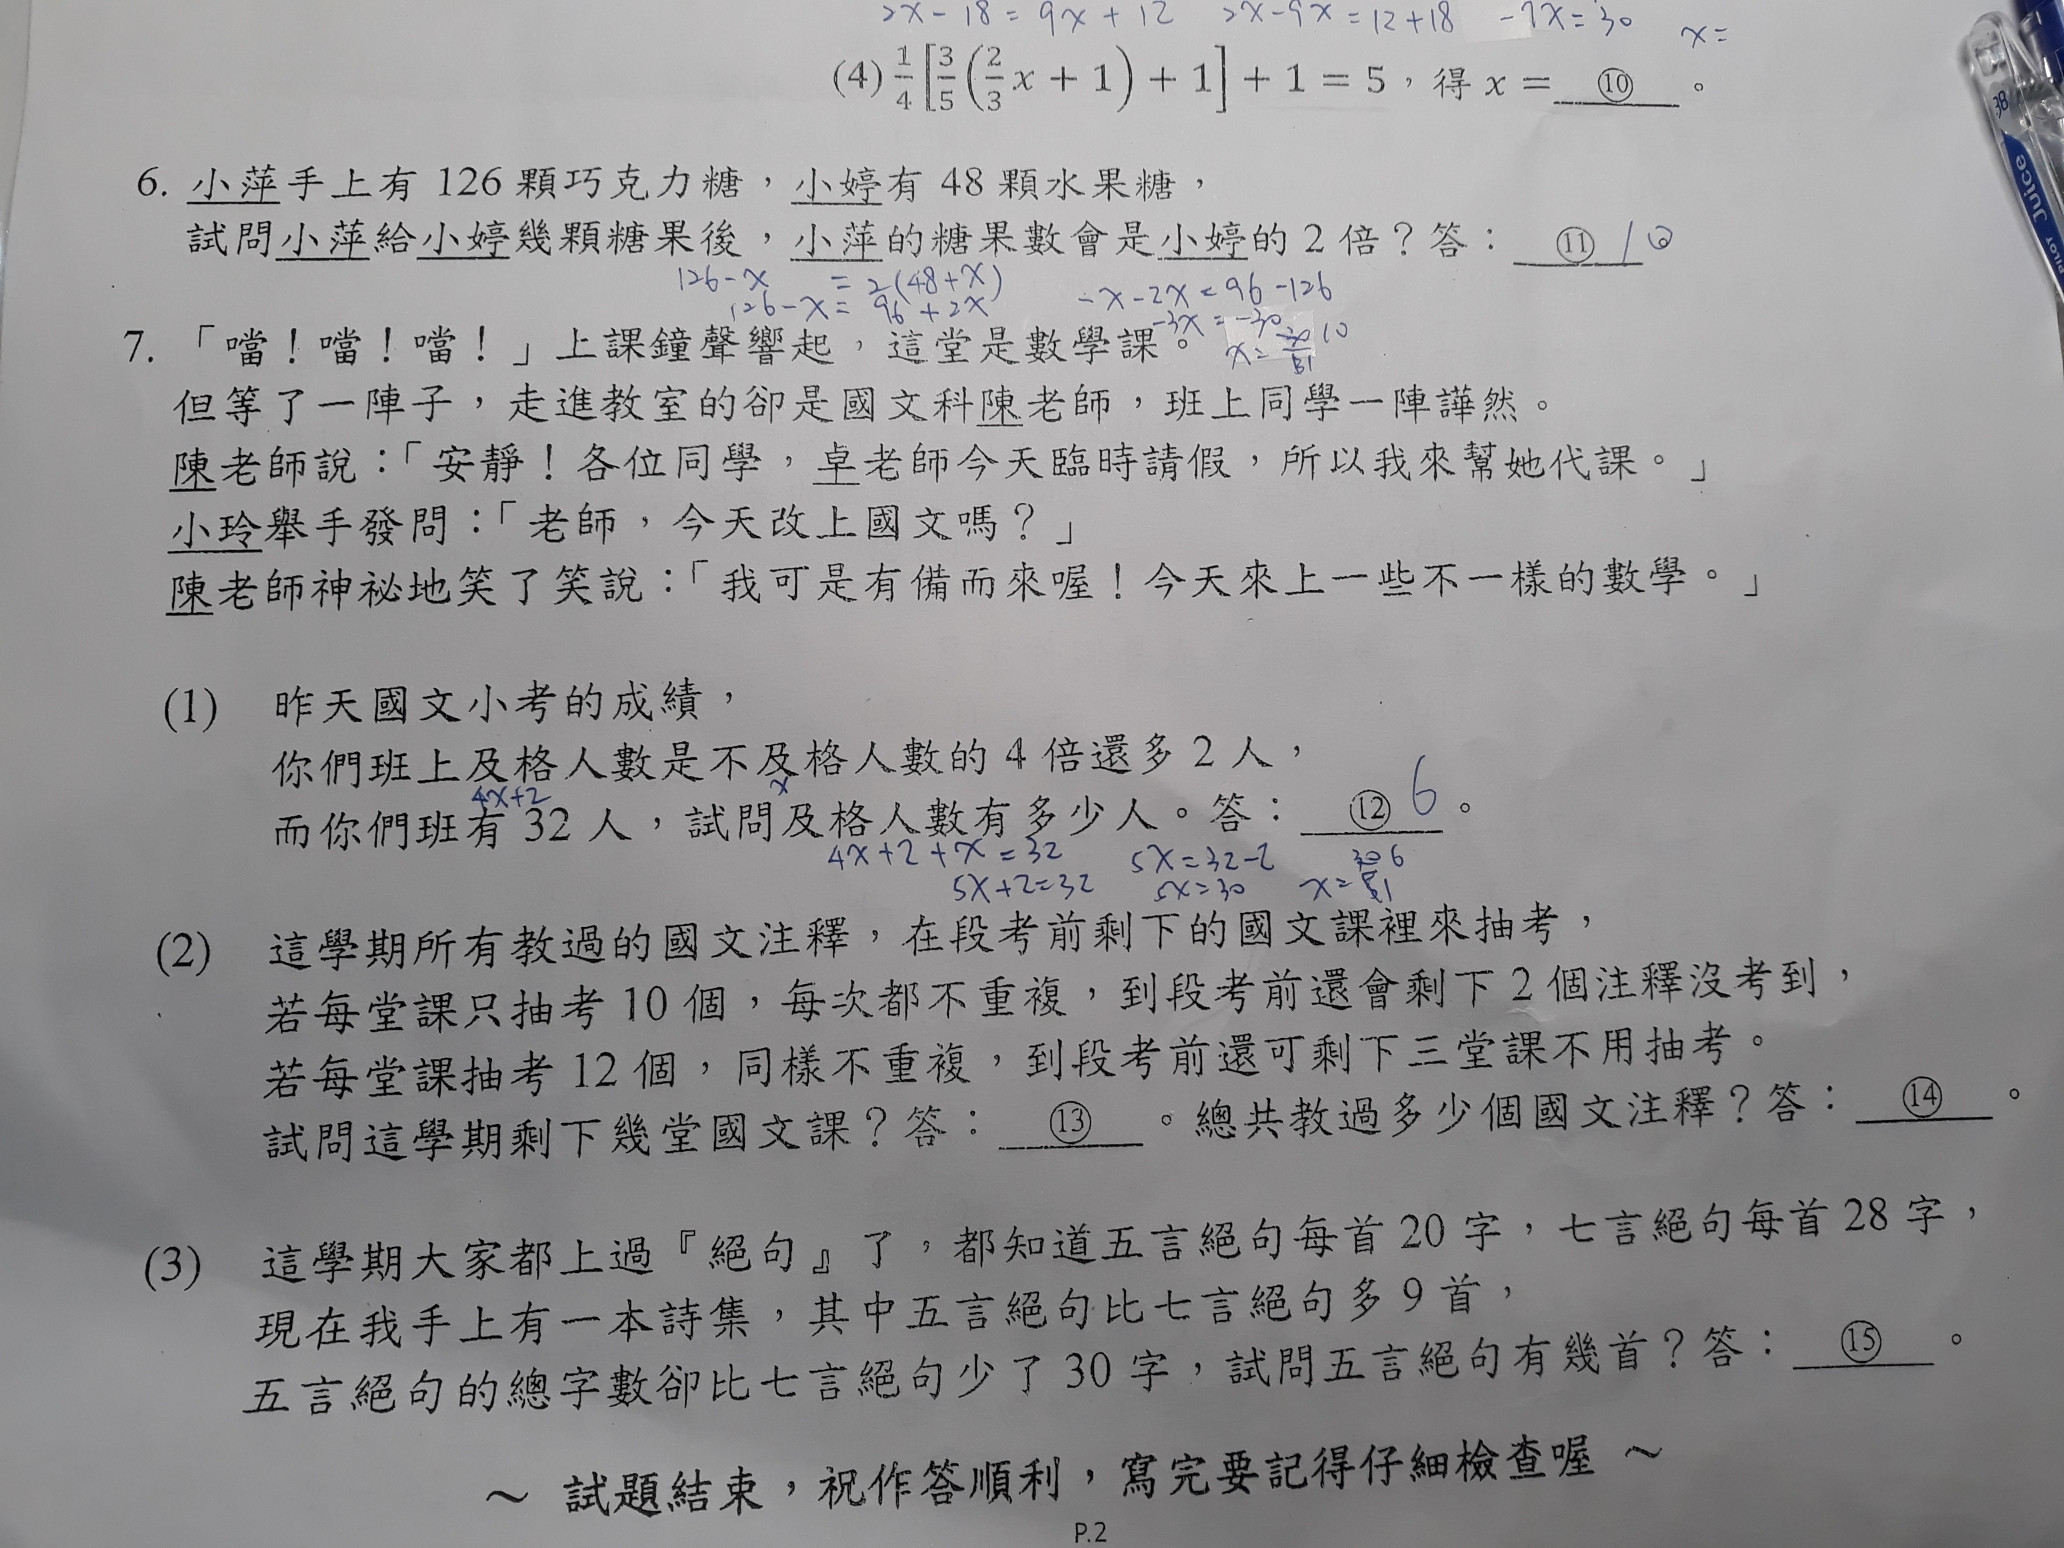 2x-18=9x+12 2x-9x=12+18 -7x=30 x=
(4) 1/4[3/5(2/3x+1)+1]+1=5,得 x= ⑩ 。
6. 小萍手上有 126 顆巧克力糖,小婷有 48 顆水果糖,
試問小萍給小婷幾顆糖果後,小萍的糖果數會是小婷的 2 倍?答: ⑪ 10
126-x =2(48+x) -x-2x=96-126
126-x=96+2x -3x=-30
7. 「噹!噹!噹!」上課鐘聲響起,這堂是數學課。 x= 10
但等了一陣子,走進教室的卻是國文科陳老師,班上同學一陣譁然。
陳老師說:「安靜!各位同學,卓老師今天臨時請假,所以我來幫她代課。」
小玲舉手發問:「老師,今天改上國文嗎?」
陳老師神祕地笑了笑說:「我可是有備而來喔!今天來上一些不一樣的數學。」
(1) 昨天國文小考的成績,
你們班上及格人數是不及格人數的 4 倍還多 2 人,
4x+2 x
而你們班有 32 人,試問及格人數有多少人。答: ⑫ 6 。
4x+2+x=32 5x=32-2 30 6
5x+2=32 5x=30 x= 5 1
(2) 這學期所有教過的國文注釋,在段考前剩下的國文課裡來抽考,
若每堂課只抽考 10 個,每次都不重複,到段考前還會剩下 2 個注釋沒考到,
若每堂課抽考 12 個,同樣不重複,到段考前還可剩下三堂課不用抽考。
試問這學期剩下幾堂國文課?答: ⑬ 。總共教過多少個國文注釋?答: ⑭ 。
(3) 這學期大家都上過『絕句』了,都知道五言絕句每首 20 字,七言絕句每首 28 字,
現在我手上有一本詩集,其中五言絕句比七言絕句多 9 首,
五言絕句的總字數卻比七言絕句少了 30 字,試問五言絕句有幾首?答: ⑮ 。
~ 試題結束,祝作答順利,寫完要記得仔細檢查喔 ~
P.2
38
Juice
PILOT